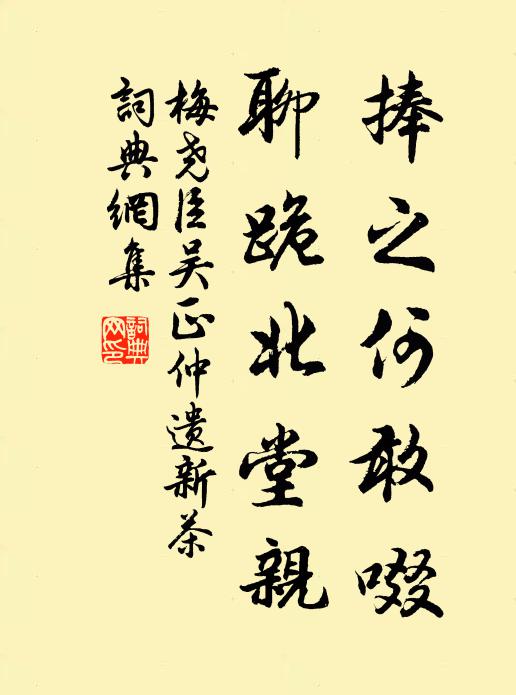 捧之何敢啜
聊跪北堂親
梅尧臣吴正仲遗新茶
詞典網集
詞典网印